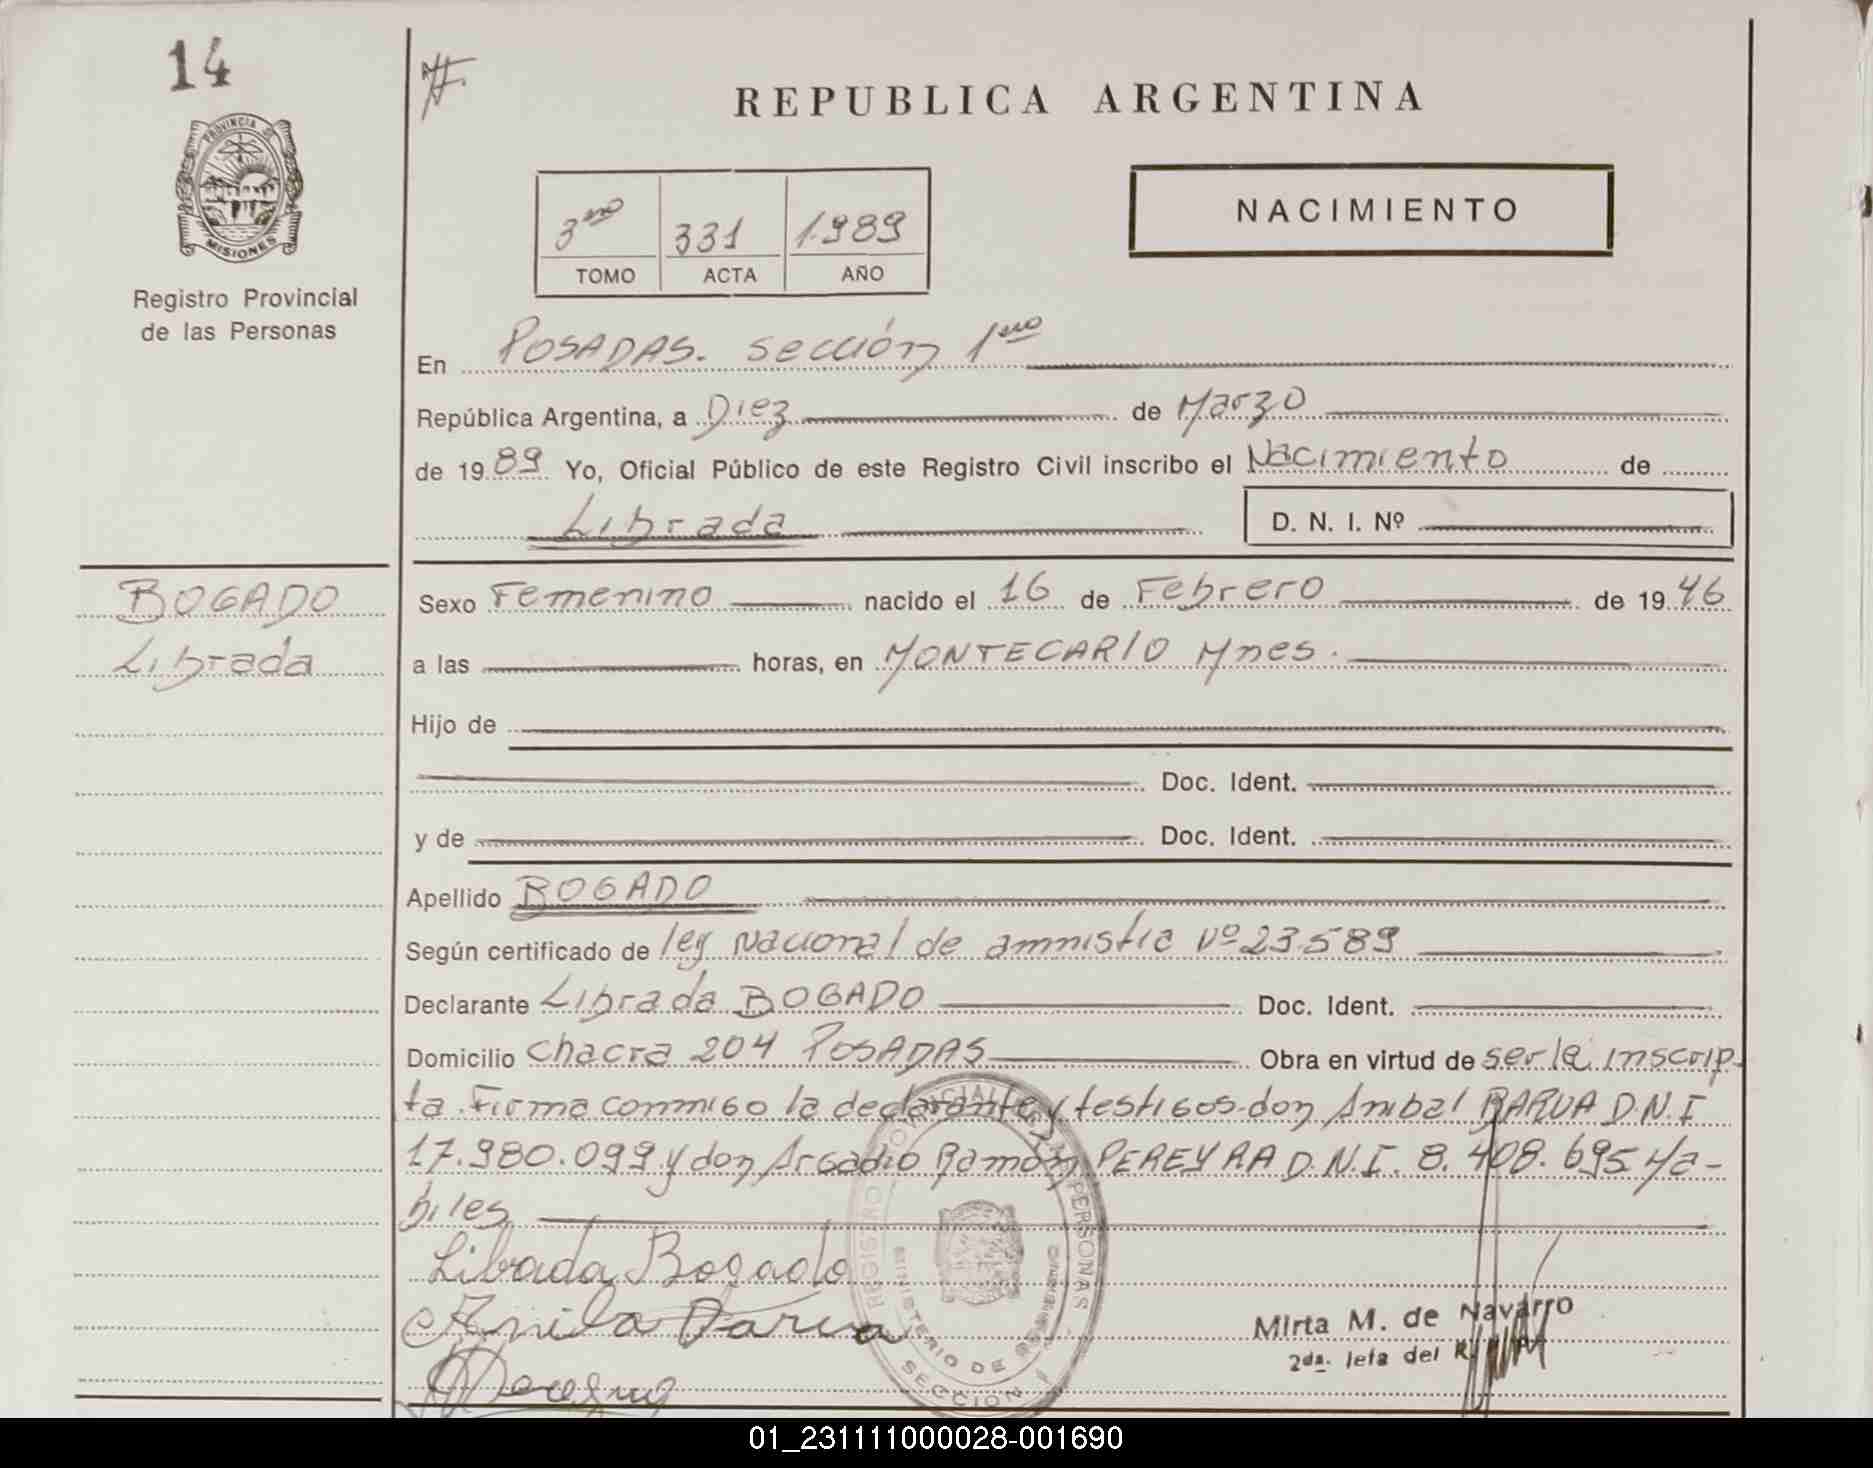 14
REPUBLICA ARGENTINA
PROVINCIA DE
MISIONES
Registro Provincial
de las Personas
3ero 331 1.989
TOMO ACTA AÑO
NACIMIENTO
En POSADAS. sección 1ero
República Argentina, a Diez de Marzo
de 1989 Yo, Oficial Público de este Registro Civil inscribo el Nacimiento de
Librada D. N. I. Nº
BOGADO
Librada
Sexo Femenino nacido el 16 de Febrero de 1946
a las horas, en MONTECARLO Mnes.
Hijo de
Doc. Ident.
y de Doc. Ident.
Apellido BOGADO
Según certificado de ley Nacional de amnistia Nº 23.589
Declarante Librada BOGADO Doc. Ident.
Domicilio Chacra 204 POSADAS Obra en virtud de serle inscrip-
ta. Firma conmigo la declarante y testigos don Anibal BARUA D.N.I
17.980.099 y don Arcadio Ramón PEREYRA D.N.I. 8.408.695 Há-
biles
Librada Bogado
REGISTRO PROVINCIAL DE LAS PERSONAS
MINISTERIO DE GOBIERNO
SECCION 1
Mirta M. de Navarro
2da. Jefa del R.
01_231111000028-001690